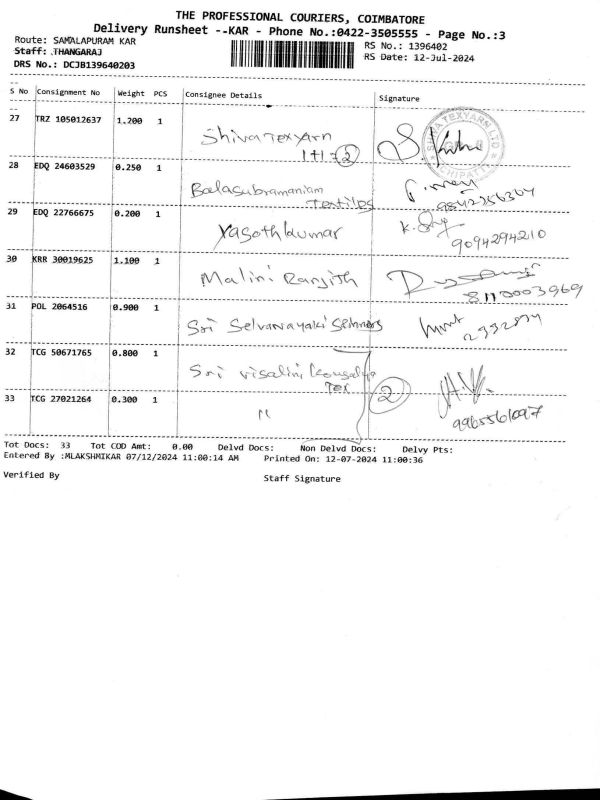 THE PROFESSIONAL COURIERS, COIMBATORE
Delivery Runsheet --KAR - Phone No.:0422-3505555 - Page No.:3
Route: SAMALAPURAM KAR RS No.: 1396402
Staff: THANGARAJ RS Date: 12-Jul-2024
DRS No.: DCJB139640203
S No Consignment No Weight PCS Consignee Details Signature
27 TRZ 105012637 1.200 1 Shiva Texyarn
1+1=2
SHIVA TEXYARN LTD
28 EDQ 24603529 0.250 1 Balasubramaniam
Textiles
29 EDQ 22766675 0.200 1 Yasothkumar
9094294210
30 KRR 30019625 1.100 1 Malini Ranjith
8110003969
31 POL 2064516 0.900 1 Sri Selvanayaki Spinners
32 TCG 50671765 0.800 1 Sri Visalini Kousalya
Tex 2
33 TCG 27021264 0.300 1 "
9965561097
Tot Docs: 33 Tot COD Amt: 0.00 Delvd Docs: Non Delvd Docs: Delvy Pts:
Entered By :MLAKSHMIKAR 07/12/2024 11:00:14 AM Printed On: 12-07-2024 11:00:36
Verified By Staff Signature